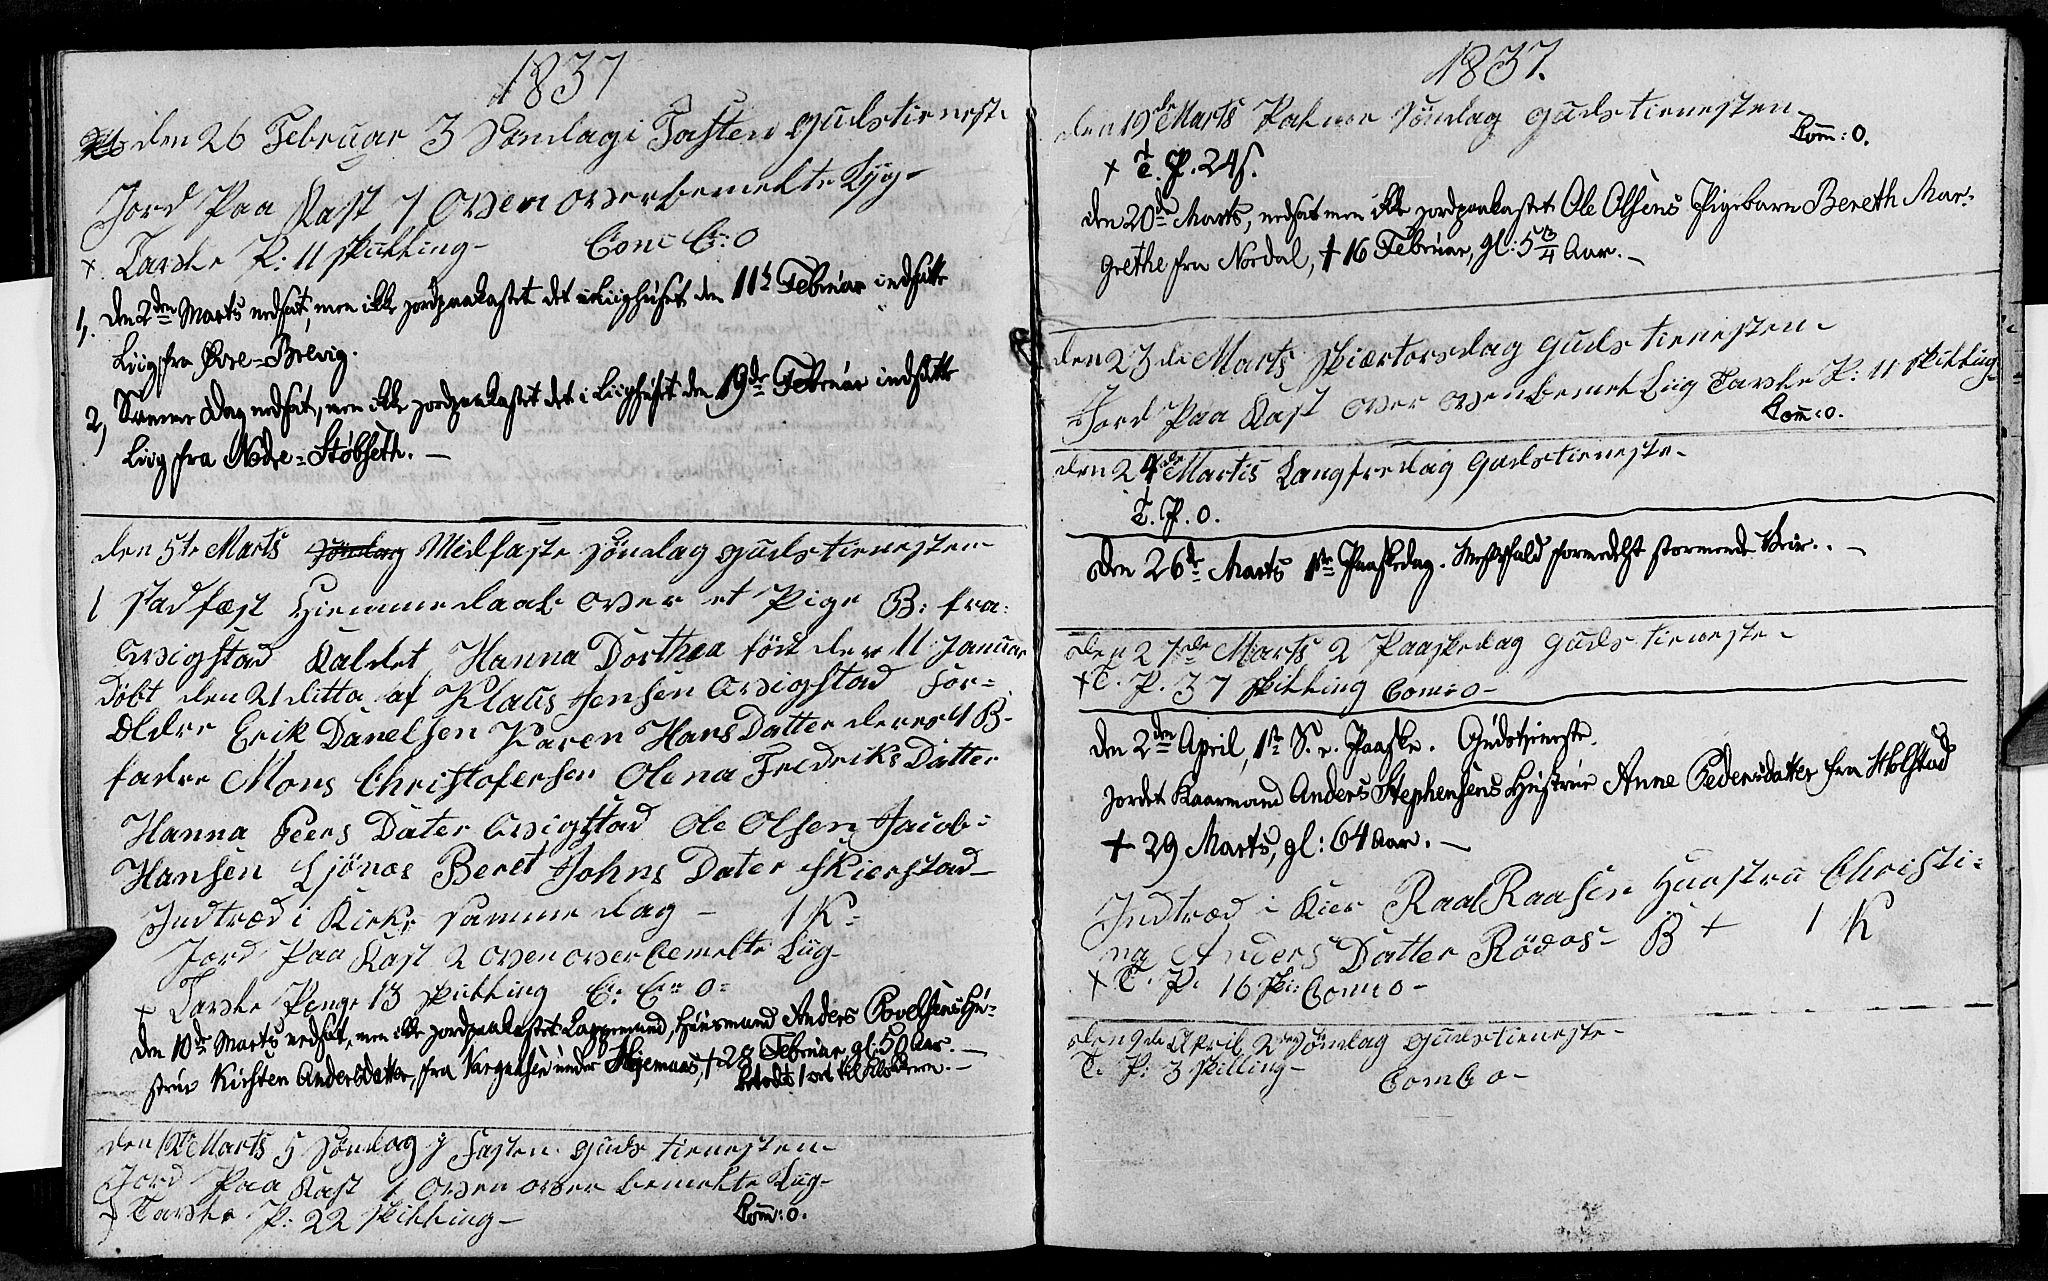 1837
den 26 Februar 3 Søndag i Fasten gudstienest
Jord Paa Kast 1 oven overbemelte Lyg -
+ Tavske P: 11 skilling - Com C: 0
1, Den 2den Marts nedsat, men ikke jordpaakastet det i Liighuset den 11te Februar indsatte
Liig fra Øvre-Brevig.
2, Samme Dag nedsat, men ikke jordpaakastet det i Liighuset den 19de Februar indsatte
Liig fra Nedre-Støbseth. -
den 5te Marts Søndag Midfaste søndag gudstienesten
1 stadfæst Hiemmedaab over et Pige B: fra
Qvigstad Kaldet Hanna Dorthea født den 11 Januar
døbt den 21 ditto af Klaus Jensen Qvigstad For-
ældre Erik Danelsen Karen Hans Datter deres 1 B-
fadre Mons Christofersen Olena Fredriks Datter
Hanna Peers Dater Qvigstad Ole Olsen Jacob
Hansen Ljønæs Beret Johns Dater Skierstad
Indtræd i Kirke samme dag - 1 K-
Jord Paa Kast 2 oven overbemelte Liig -
+ Tavske Penge 13 skilling C: C: 0 -
Den 10de Marts nedsat, men ikke jordpaakastet Lappemand, Huusmand Anders Povelsens Hu-
strue Kirsten Andersdatter, fra under Hjemaas, + 28 Februar, gl: 50 Aar. -
betalt 1 ort til Klokkeren. -
den 12te Marts 5 Søndag i Fasten gudstienesten
Jord Paa Kast 1 oven over bemelte Liig -
+ Tavske P: 22 skilling - Com: 0.
1837.
den 19de Marts Palme Søndag gudstienesten
Com: 0.
+ T. P. 24 s.
Den 20de Marts, nedsat men ikke jordpaakastet Ole Olsens Pigebarn Bereth Mar-
grethe fra Nordal, + 16 Februar, gl: 5 3/4 Aar. -
den 23de Marts skiærtorsdag gudstienesten
Jord Paa Kast over ovenbemelt Liig Tavske P: 11 skilling
Com: 0.
den 24de Martis Langfredag gudstieneste -
T. P. 0.
Den 26de Marts 1ste Paaskedag. Messefald formedelst stormende Veir. -
den 27de Marts 2 Paaskedag gudstieneste -
+ T. P. 37 skilling Com: 0 -
Den 2den April, 1ste S. e. Paaske. Gudstjeneste.
Jordet Kaarmand Anders Stephensens Hustrue Anne Pedersdatter fra Holstad
+ 29 Marts, gl: 64 Aar. -
Indtræd i Kier Raal Raasen Huustru Christi-
na Anders Datter Rødos - B + 1 K
+ T. P. 16 sk: Com: 0 -
den 9de April 2den Søndag gudstieneste -
T. P: 3 skilling - Com C 0 -